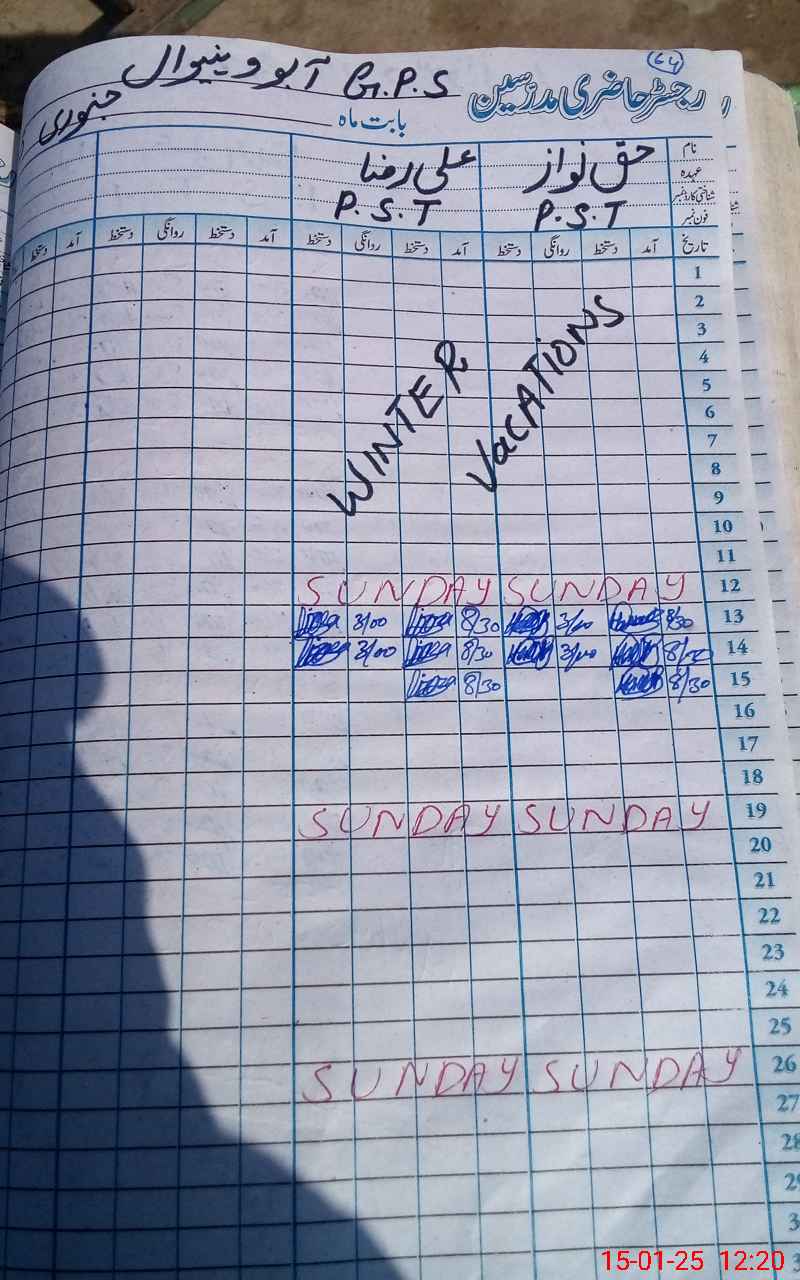 64
رجسٹر حاضری مدرسین G.P.S آبو وینیوال
بابت ماہ جنوری
نام حق نواز علی رضا
عہدہ
شناختی کارڈ نمبر P.S.T P.S.T
فون نمبر
تاریخ آمد دستخط روانگی دستخط آمد دستخط روانگی دستخط آمد دستخط روانگی دستخط آمد دستخط
1
2
3
4
5
6
7
8
9
10
11
WINTER VACATIONS
SUNDAY SUNDAY 12
3/00 8/30 3/00 8/30 13
3/00 8/30 3/00 14
8/30 8/30 15
16
17
18
SUNDAY SUNDAY 19
20
21
22
23
24
25
SUNDAY SUNDAY 26
27
28
15-01-25 12:20